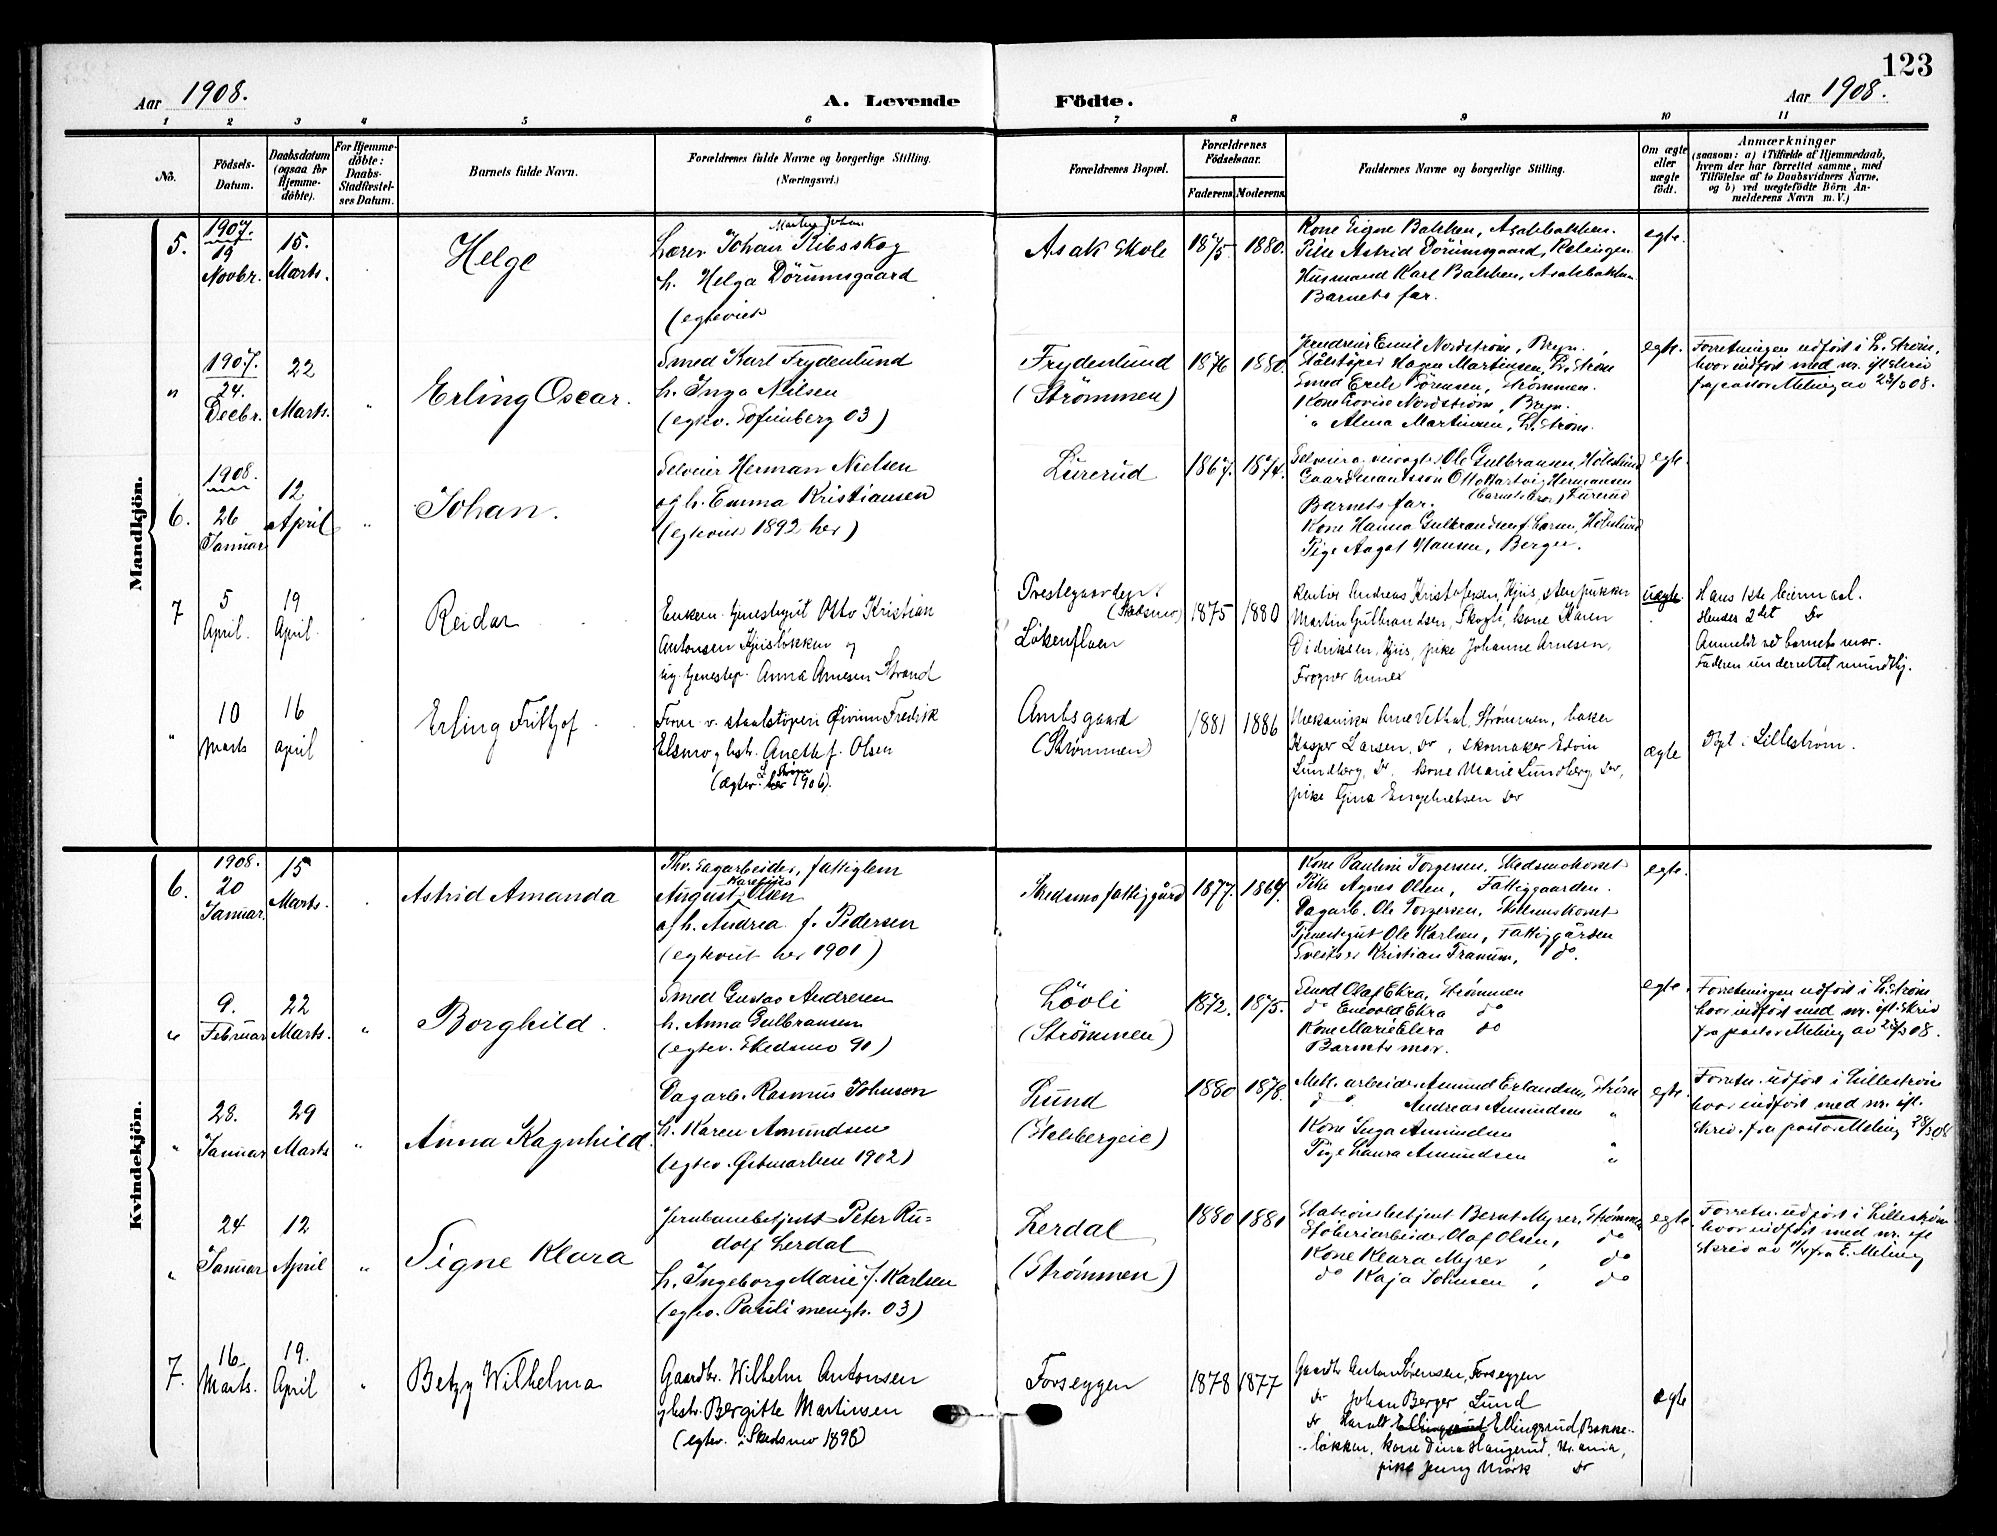 123
Aar 1908.
A. Levende Födte.
Aar 1908.
1 2 3 4 5 6 7 8 9 10 11
No.
Födsels-Datum.
Daabsdatum (ogsaa for Hjemme-döbte).
For Hjemme-döbte: Daabs-Stadfæstel-ses Datum.
Barnets fulde Navn.
Forældrenes fulde Navne og borgerlige Stilling.
(Næringsvei.)
Forældrenes Bopæl.
Forældrenes Födselsaar.
Faderens. Moderens.
Faddernes Navne og borgerlige Stilling.
Om ægte eller uægte födt.
Anmærkninger
(saasom: a) i Tilfælde af Hjemmedaab,
hvem der har forrettet samme, med
Tilföielse af to Daabsvidners Navne,
og b) ved uægtefödte Börn An-
melderens Navn m. V.)
Mandkjön.
5.
1907.
19
Novbr.
15.
Marts.
Helge
Martin Johan
Lærer Johan Ribsskog
h. Helga Dörumsgaard
(egteviet
Asak Skole
1875. 1880.
Kone Signe Bakken, Asakbakken.
Pike Astrid Dörumsgaard, Rælingen
Husmand Karl Bakken, Asakbakken
Barnets far.
egte.
"
1907.
24.
Decbr.
22
Marts.
"
Erling Oscar.
Smed Karl Frydenlund
h. Inga Nilsen
(egtev. Sofienberg 03)
Frydenlund
(Strømmen)
1876 1880.
Emil Nordstrøm, Bryn.
Stålstöper Hagen Martinsen, L. Strøm
Smed Erik Sörensen, Strømmen.
Kone Lovise Nordstrøm, Bryn.
" Alma Martinsen, L. Strøm.
egte.
Forretningen udført i L. Strøm,
hvor indført med nr. eft. skriv
fra pastor Meling av 23/3 08.
6.
1908.
26
Januar
12
April
"
Johan.
Selveier Herman Nielsen
og h. Emma Kristiansen
(egteviet 1892 her)
Lurerud
1867. 1874.
Selveier o. veivogter Ole Gulbransen, Hölslund
Gaardmandssön Otto Hartvig Hermansen
(barnets bror) Lurerud
Barnets far.
Kone Hanna Gulbrandsen f. Larsen, Hölslund
Pige Aagot Hansen, Berger.
egte.
7
5
April.
19
April.
Reidar
Enkem. tjenestegut Otto Kristian
Antonsen Kjuslökken og
ug. tjenestep. Anna Arnesen Strand
Prestegaarden
(Skedsmo)
Løkenflaen
1875 1880
Rentier Andreas Kristofersen, Kjus, stenpukker
Martin Gulbrandsen, Skogli, kone Karen
Didriksen, Kjus, pike Johanne Arnesen,
Frogner Annex
uægte.
Hans 1ste leiermaal.
Hendes 2det Do
Anmeldt ved barnets mor.
Faderen underrettet mundtlig.
"
10
Marts
16
april
Erling Frithjof
Form. v. staalstöperi Øivinn Fredrik
Elsmo og hstr. Anette f. Olsen
L. Strøm
(ægtev. her 1906).
Ambsgaard
(Strømmen)
1881 1886
Mekaniker Arne Vethal, Strømmen, baker
Kasper Larsen, do, skomaker Edvin
Lundberg, do. kone Marie Lundberg, do,
pike Gina Engebretsen do
ægte
Døpt i Lillestrøm.
Kvindekjön.
6.
1908.
20
Januar.
15
Marts.
Astrid Amanda
Fhv. Sagarbeider, fattiglem
August Olsen
og h. Andrea f. Pedersen
(egteviet her 1901)
Skedsmo fattiggård
1877. 1867.
Kone Pauline Torgersen, Skedsmokorset
Pike Agnes Olsen, Fattiggaarden.
Dagarb. Ole Torgersen, Skedsmokorset
Tjenestegut Ole Karlsen, Fattiggården
Kristian Tranum, do.
egte.
"
9.
Februar
22
Marts.
"
Borghild.
Smed Gustav Andresen
h. Anna Gulbransen
(egtev. Skedsmo 90)
Lövli
(Strømmen)
1872. 1875.
Smed Olaf Ekra, Strømmen
do Enevold Ekra do
Kone Marie Ekra do
Barnets mor.
egte.
Forretningen udført i L. Strøm
hvor indført med nr. eft. skriv
fra pastor Meling av 23/3 08.
"
28.
Januar
29
Marts
"
Anna Ragnhild.
Dagarb. Rasmus Johnson
h. Karen Amundsen
(egtev. Østmarken 1902)
Lund
1880 1878.
Mek. arbeider Amund Erlandsen, Strøm
d o. Andreas Amundsen "
Kone Inga Amundsen "
Pige Laura Amundsen "
egte.
Forretn. udført i Lillestrøm
hvor indført med nr. eft.
skriv. fra pastor Meling 28/3 08
"
24
Januar
12
April
"
Signe Klara
Jernbanebetjent Peter Ru-
dolf Lerdal
h. Ingeborg Marie f. Karlsen
(egtev. Pauli menigh. 03)
Lerdal
(Strømmen)
1880 1881
Stationsbetjent Bernt Myrer, Strømmen
Stöberiarbeider Olaf Olsen, do
Kone Klara Myrer, do
do Kaja Johnsen, do
egte
Forretn. udført i Lillestrøm
hvor indført med nr. eft
skriv av fra E. Meling
7.
16
Marts.
19.
April
"
Betzy Wilhelma
Gaardbr. Wilhelm Antonsen
og hstr. Bergitte Martinsen
(egtev. i Skedsmo 1898)
Forseggen
1878 1877
Gaardbr Anton Sörensen, Forseggen
do Johan Berger Lund
do Harald Ellingsrud Ellingsrud Bakke-
løkken, kone Dina Haugerud, Kr.ania,
pike Jenny Mörk do
ægte